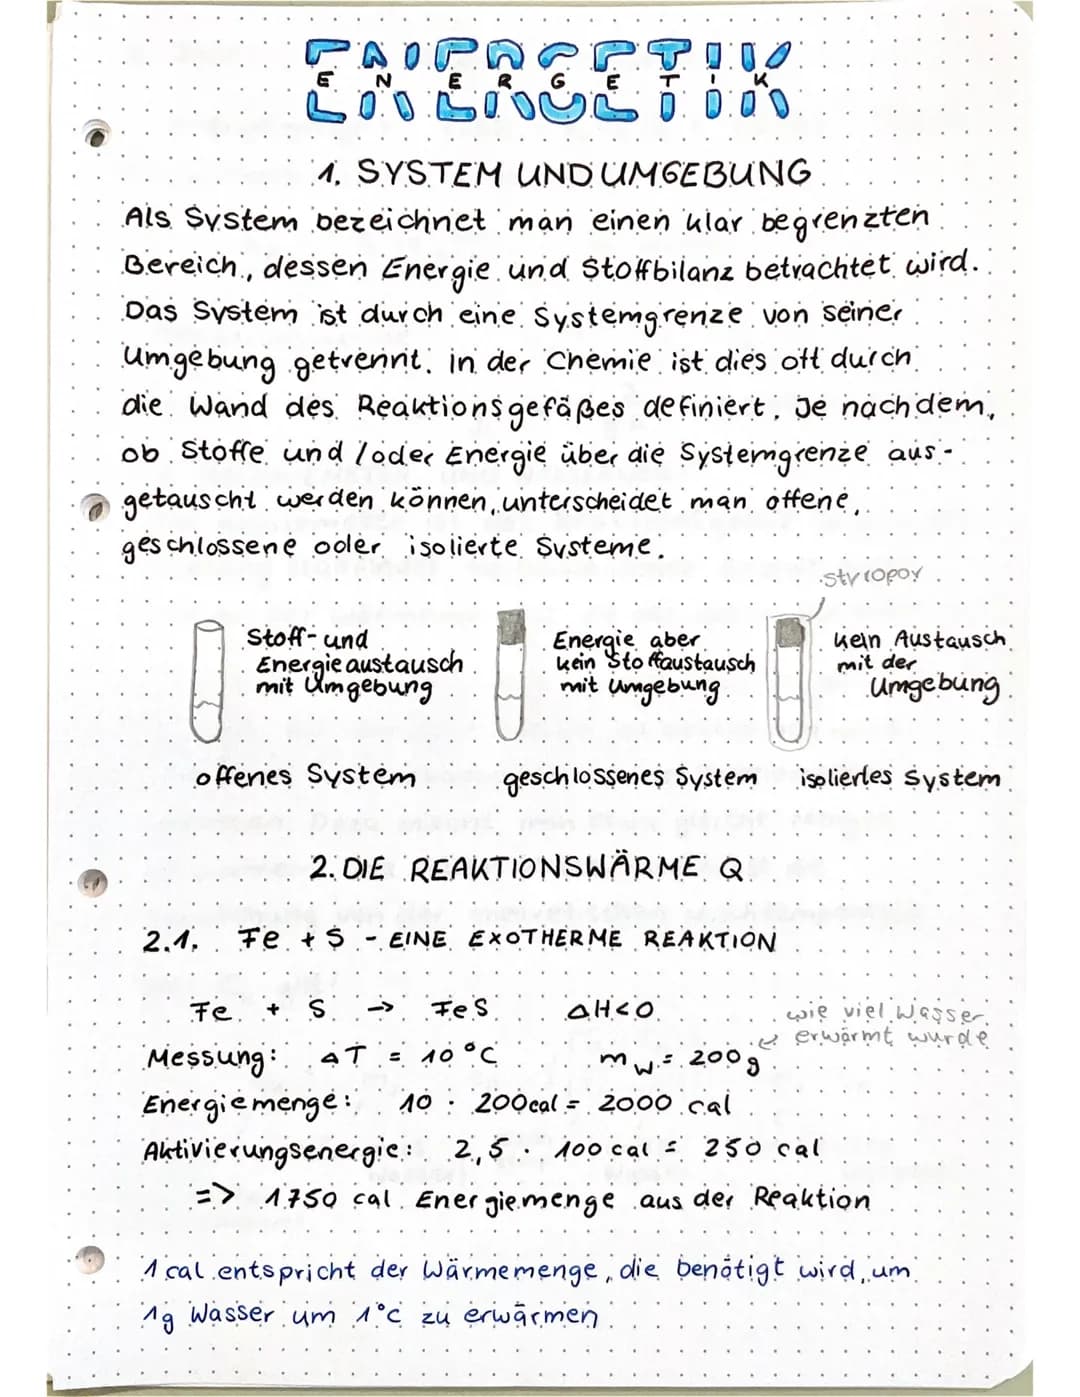 ENERGETIK
1. SYSTEM UND UMGEBUNG
Als System bezeichnet man einen klar begrenzten
Bereich, dessen Energie und Stoffbilanz betrachtet wird.
Das System ist durch eine Systemgrenze von seiner
Umgebung getrennt. in der Chemie ist dies oft durch
die Wand des Reaktionsgefäßes definiert. Je nachdem,
ob Stoffe und/oder Energie über die Systemgrenze aus-
getauscht werden können, unterscheidet man offene,
geschlossene oder isolierte Systeme.
styropor
Stoff- und
Energieaustausch
mit Umgebung
offenes System
Energie aber
kein Stoffaustausch
mit Umgebung
geschlossenes System
kein Austausch
mit der
Umgebung
isoliertes System
2. DIE REAKTIONSWÄRME Q
2.1. Fe + S - EINE EXOTHERME REAKTION
Fe + S → FeS ΔH<0
wie viel Wasser
erwärmt wurde
Messung: ΔT = 10°C m_W = 200g
Energiemenge: 10 · 200cal = 2000 cal
Aktivierungsenergie: 2,5 · 100 cal = 250 cal
=> 1750 cal Energiemenge aus der Reaktion
1 cal entspricht der Wärmemenge, die benötigt wird, um
1g Wasser um 1°C zu erwärmen